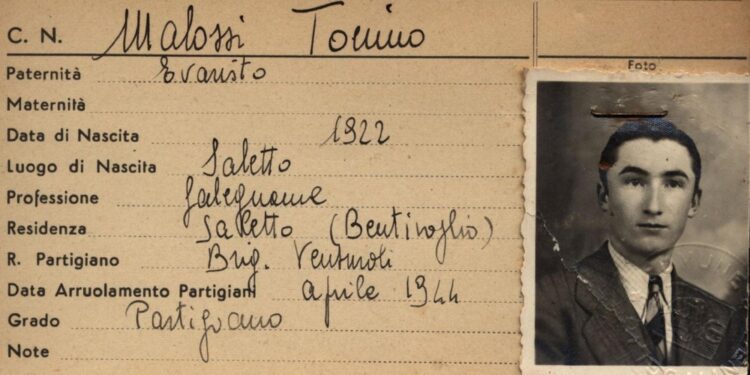 C. N. Malossi Tonino
Foto
Paternità Evaristo
Maternità
Data di Nascita 1922
Luogo di Nascita Saletto
Professione falegname
Residenza Saletto (Bentivoglio)
R. Partigiano Brig. Venturoli
Data Arruolamento Partigiani aprile 1944
Grado Partigiano
Note